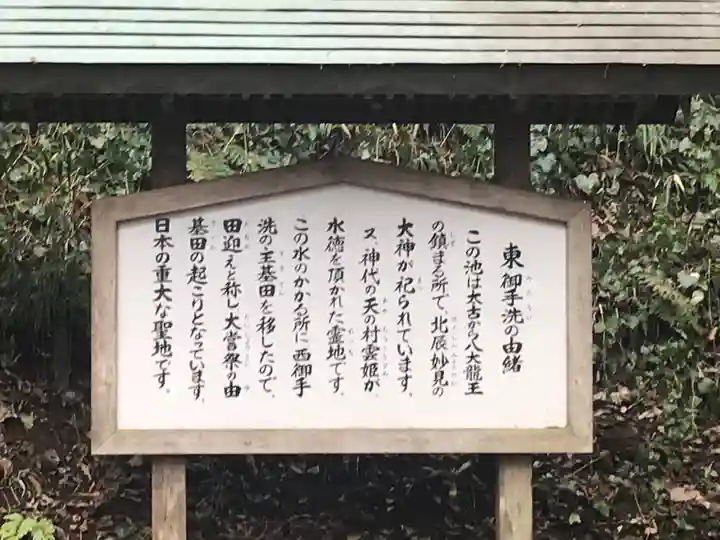 東御手洗の由緒
この池は太古から八大龍王
の鎮まる所で、北辰妙見の
大神が祀られています。
又、神代の天の村雲姫が、
水徳を頂かれた霊地です。
この水のかかる所に西御手
洗の王基田を移したので、
田迎えと称し大嘗祭の由
基田の起こりとなっています。
日本の重大な聖地です。